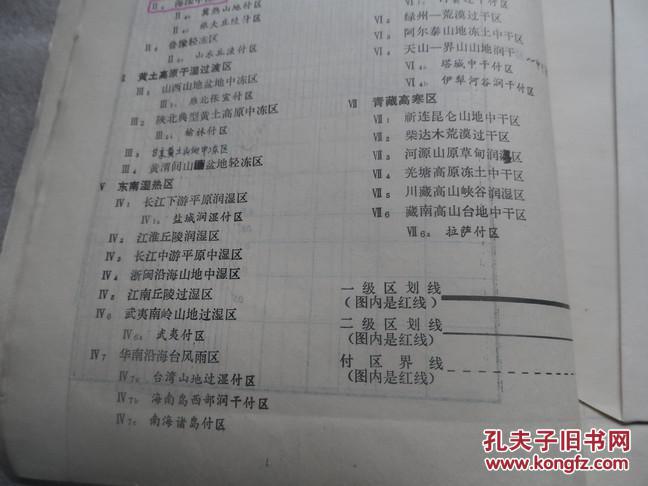 Ⅱ₄ₐ 冀热山地付区
Ⅱ₄ᵦ 旅大丘陵付区
Ⅱ₅ 鲁豫轻冻区
Ⅱ₅ₐ 山东丘陵付区
黄土高原干湿过渡区
Ⅲ₁ 山西山地盆地中冻区
Ⅲ₁ₐ 雁北张宣付区
Ⅲ₂ 陕北典型黄土高原中冻区
Ⅲ₂ₐ 榆林付区
Ⅲ₃ 甘东黄土山地中冻区
Ⅲ₄ 黄渭间山 盆地轻冻区
Ⅴ 东南湿热区
Ⅳ₁ 长江下游平原润湿区
Ⅳ₁ₐ 盐城润湿付区
Ⅳ₂ 江淮丘陵润湿区
Ⅳ₃ 长江中游平原中湿区
Ⅳ₄ 浙闽沿海山地中湿区
Ⅳ₅ 江南丘陵过湿区
Ⅳ₆ 武夷南岭山地过湿区
Ⅳ₆ₐ 武夷付区
Ⅳ₇ 华南沿海台风雨区
Ⅳ₇ₐ 台湾山地过湿付区
Ⅳ₇b 海南岛西部润干付区
Ⅳ₇c 南海诸岛付区
Ⅵ₂ 绿州一荒漠过干区
Ⅵ₃ 阿尔泰山地冻土中干区
Ⅵ₄ 天山一界山山地润干
Ⅵ₄ₐ 塔城中干付区
Ⅵ₄b 伊犁河谷润干付区
Ⅶ 青藏高寒区
Ⅶ₁ 祈连昆仑山地中干区
Ⅶ₂ 柴达木荒漠过干区
Ⅶ₃ 河源山原草甸润湿区
Ⅶ₄ 羌塘高原冻土中干区
Ⅶ₅ 川藏高山峡谷润湿区
Ⅶ₆ 藏南高山台地中干区
Ⅶ₆ₐ 拉萨付区
一级区划线
(图内是红线)
二级区划线
(图内是红线)
付区界线
(图内是红线)
孔夫子旧书网
KONGFZ.COM